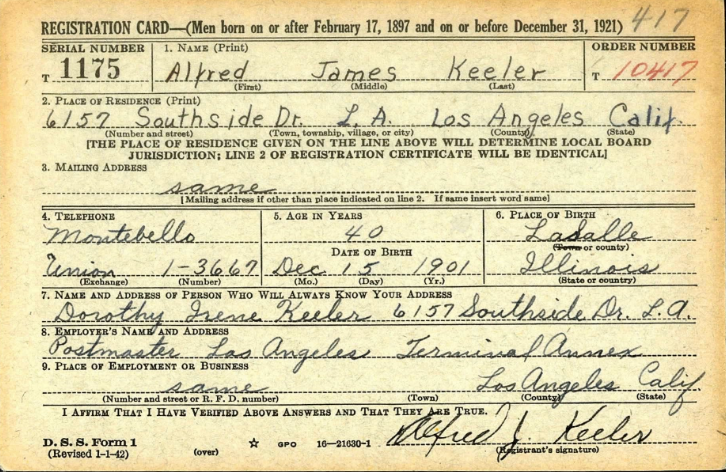 417
REGISTRATION CARD—(Men born on or after February 17, 1897 and on or before December 31, 1921)
SERIAL NUMBER 1. NAME (Print) ORDER NUMBER
T 1175 Alfred James Keeler T 10417
(First) (Middle) (Last)
2. PLACE OF RESIDENCE (Print)
6157 Southside Dr. L.A. Los Angeles Calif.
(Number and street) (Town, township, village, or city) (County) (State)
[THE PLACE OF RESIDENCE GIVEN ON THE LINE ABOVE WILL DETERMINE LOCAL BOARD
JURISDICTION; LINE 2 OF REGISTRATION CERTIFICATE WILL BE IDENTICAL]
3. MAILING ADDRESS
same
[Mailing address if other than place indicated on line 2. If same insert word same]
4. TELEPHONE 5. AGE IN YEARS 6. PLACE OF BIRTH
Montebello 40 LaSalle
DATE OF BIRTH (Town or county)
Union 1-3667 Dec 15 1901 Illinois
(Exchange) (Number) (Mo.) (Day) (Yr.) (State or country)
7. NAME AND ADDRESS OF PERSON WHO WILL ALWAYS KNOW YOUR ADDRESS
Dorothy Irene Keeler 6157 Southside Dr. L.A.
8. EMPLOYER'S NAME AND ADDRESS
Postmaster Los Angeles Terminal Annex
9. PLACE OF EMPLOYMENT OR BUSINESS
same Los Angeles Calif.
(Number and street or R. F. D. number) (Town) (County) (State)
I AFFIRM THAT I HAVE VERIFIED ABOVE ANSWERS AND THAT THEY ARE TRUE.
D. S. S. Form 1 GPO 16—21630-1 Alfred J. Keeler
(Revised 1-1-42) (over) (Registrant's signature)